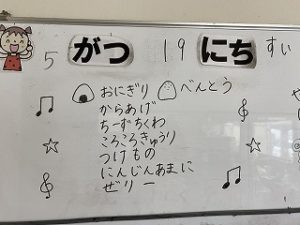 5 がつ 19 にち すい
おにぎり べんとう
からあげ
ちーずちくわ
ころころきゅうり
つけもの
にんじんあまに
ぜりー